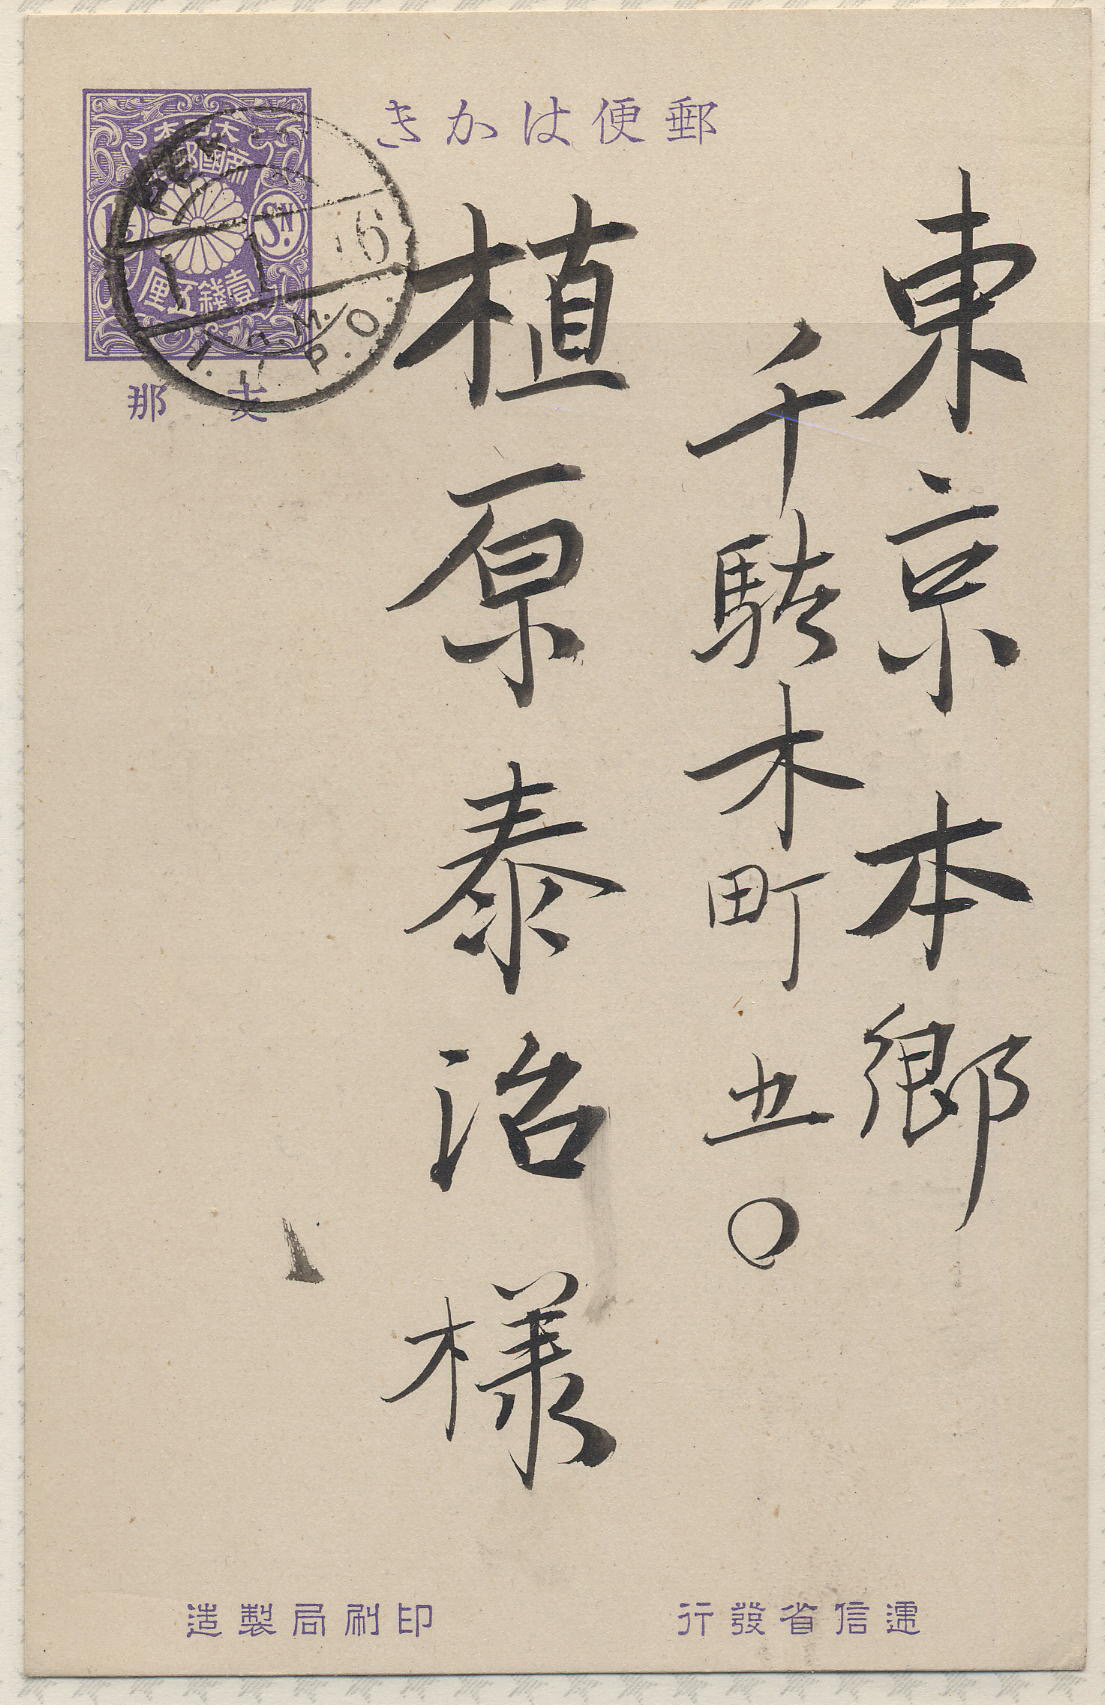 郵便はかき
大日本
帝國郵便
1½ SN.
壹錢五厘
支那
I.J.P.O.
東京本郷
千駄木町五〇
植原泰治様
逓信省發行
印刷局製造